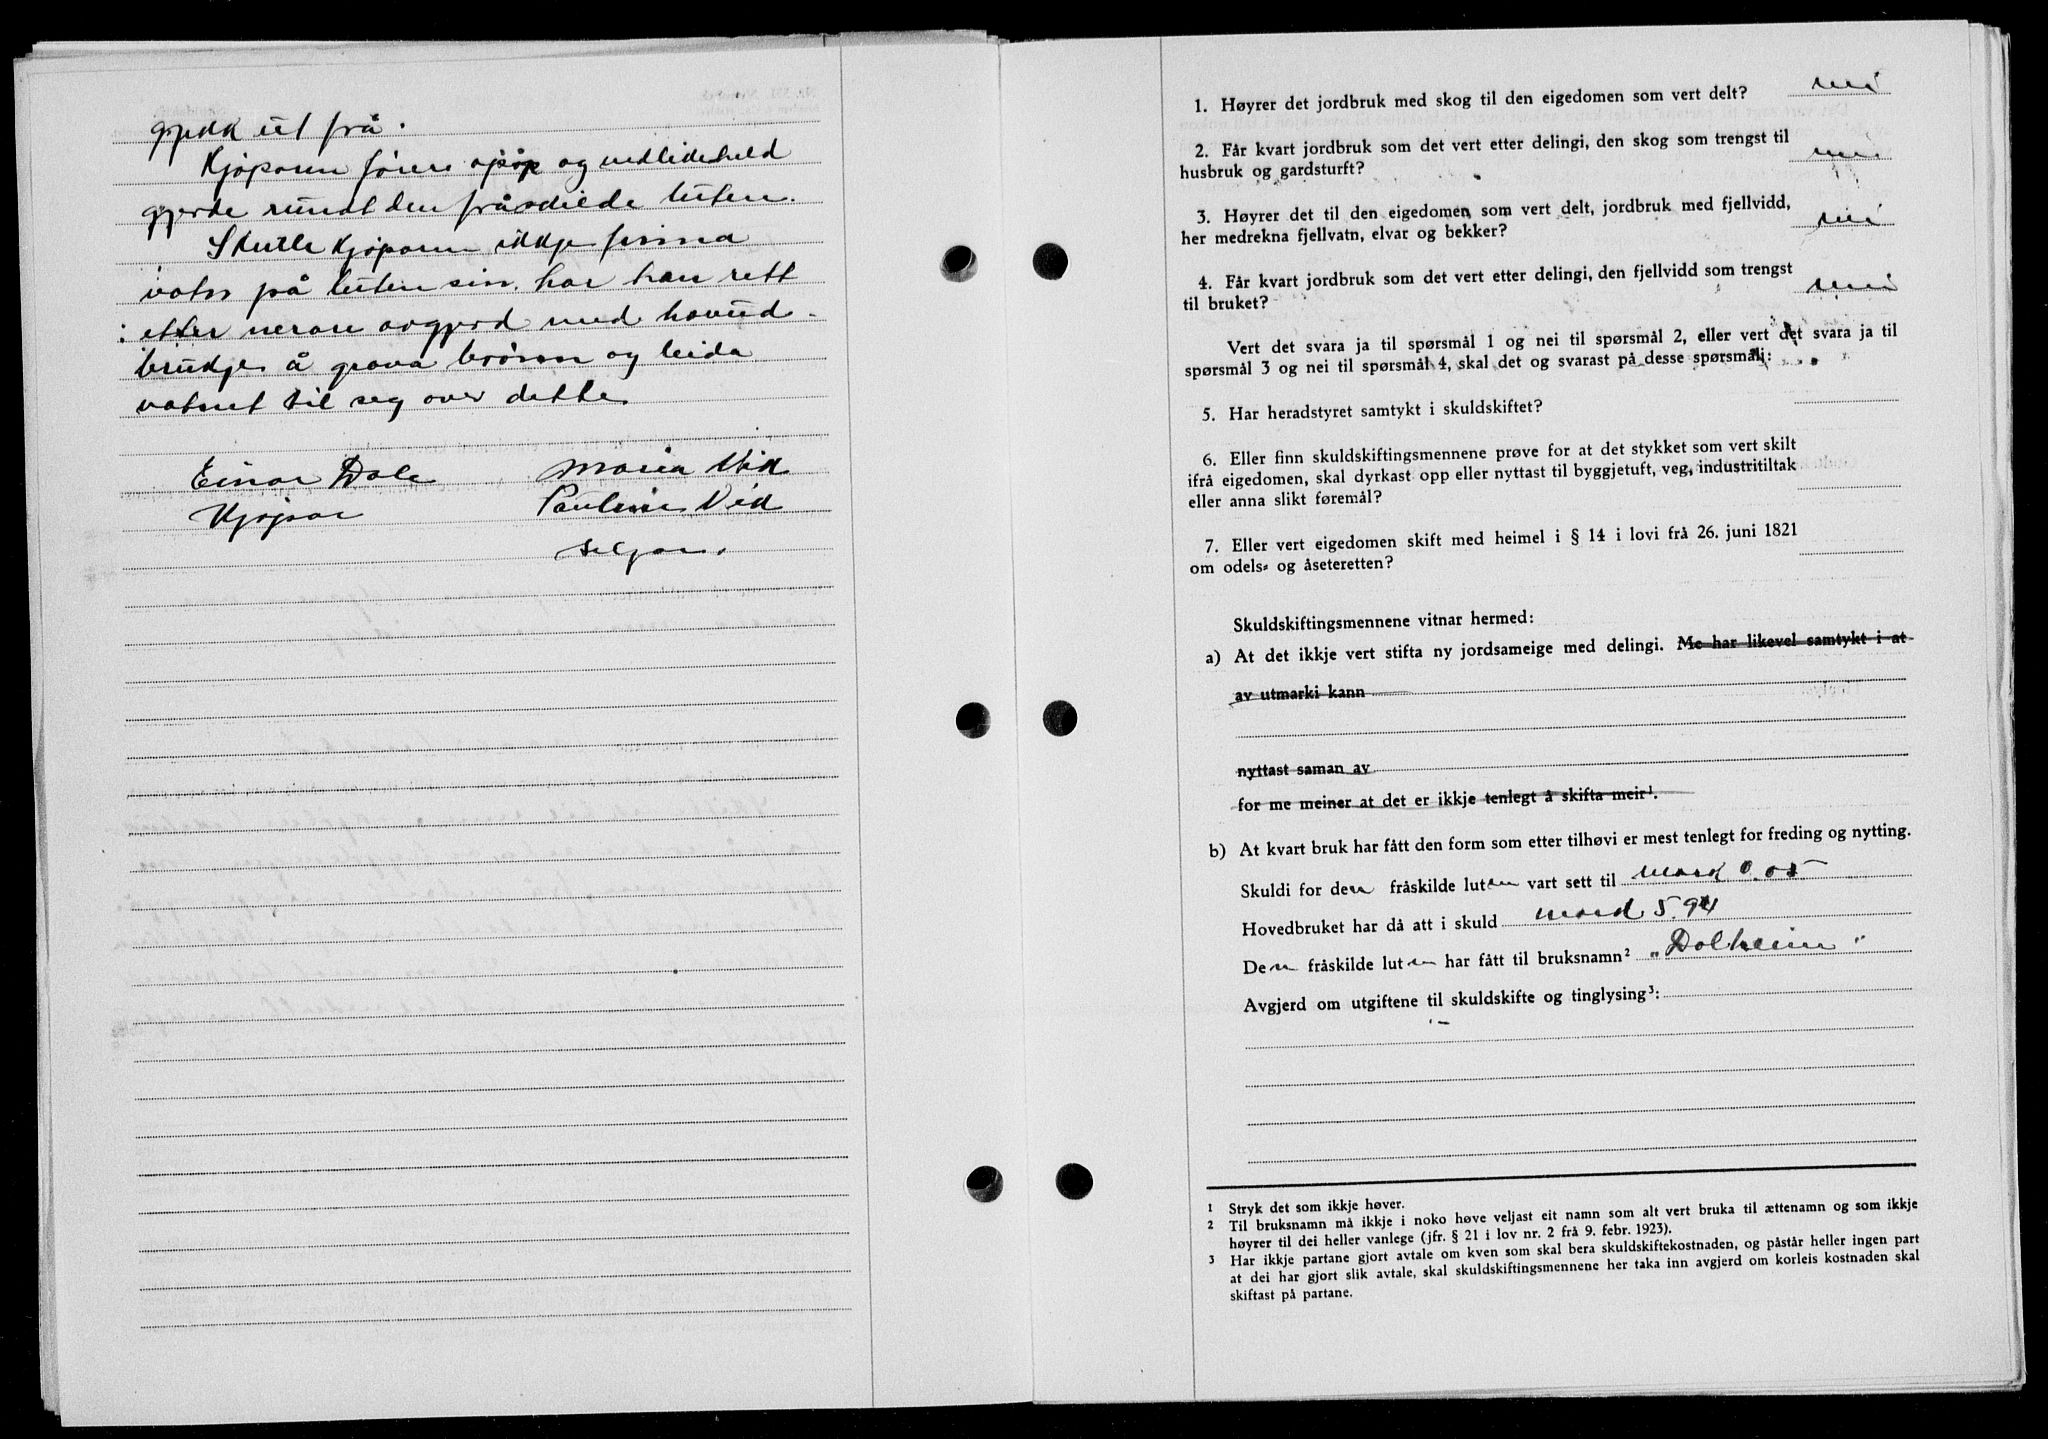 gjekk ut frå.
Kjøparen føter opp og vedlikeheld
gjerde rundt den fråskilde luten.
Skulle kjøparen ikkje finna
vatn på luten sin, har han rett
etter nerare avgjerd med hovud-
brukje å grava brønn og leida
vatnet til seg over dette.
Einar Dale Maria Vik
Kjøpar Pauline Vik
seljar.
1. Høyrer det jordbruk med skog til den eigedomen som vert delt? nei
2. Får kvart jordbruk som det vert etter delingi, den skog som trengst til
husbruk og gardsturft? nei
3. Høyrer det til den eigedomen som vert delt, jordbruk med fjellvidd,
her medrekna fjellvatn, elvar og bekker? nei
4. Får kvart jordbruk som det vert etter delingi, den fjellvidd som trengst
til bruket? nei
Vert det svara ja til spørsmål 1 og nei til spørsmål 2, eller vert det svara ja til
spørsmål 3 og nei til spørsmål 4, skal det og svarast på desse spørsmål:
5. Har heradstyret samtykt i skuldskiftet?
6. Eller finn skuldskiftingsmennene prøve for at det stykket som vert skilt
ifrå eigedomen, skal dyrkast opp eller nyttast til byggjetuft, veg, industritiltak
eller anna slikt føremål?
7. Eller vert eigedomen skift med heimel i § 14 i lovi frå 26. juni 1821
om odels- og åseteretten?
Skuldskiftingsmennene vitnar hermed:
a) At det ikkje vert stifta ny jordsameige med delingi. Me har likevel samtykt i at
av utmarki kann
nyttast saman av
for me meiner at det er ikkje tenlegt å skifta meir¹.
b) At kvart bruk har fått den form som etter tilhøvi er mest tenlegt for freding og nytting.
Skuldi for den fråskilde luten vart sett til mark 0.05
Hovedbruket har då att i skuld mark 5.94
Den fråskilde luten har fått til bruksnamn² „Dalheim"
Avgjerd om utgiftene til skuldskifte og tinglysing³:
1 Stryk det som ikkje høver.
2 Til bruksnamn må ikkje i noko høve veljast eit namn som alt vert bruka til ættenamn og som ikkje
høyrer til dei heller vanlege (jfr. § 21 i lov nr. 2 frå 9. febr. 1923).
3 Har ikkje partane gjort avtale om kven som skal bera skuldskiftekostnaden, og påstår heller ingen part
at dei har gjort slik avtale, skal skuldskiftingsmennene her taka inn avgjerd om korleis kostnaden skal
skiftast på partane.